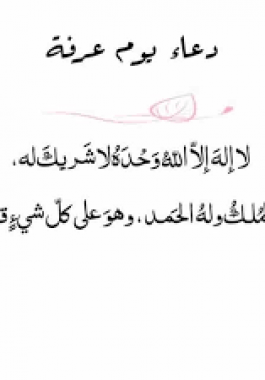 دعاء يوم عرفة
لا إله إلاَّ اللهُ وَحْدَهُ لا شريكَ له،
وله الحَمد، وهوَ على كلّ شيءٍ